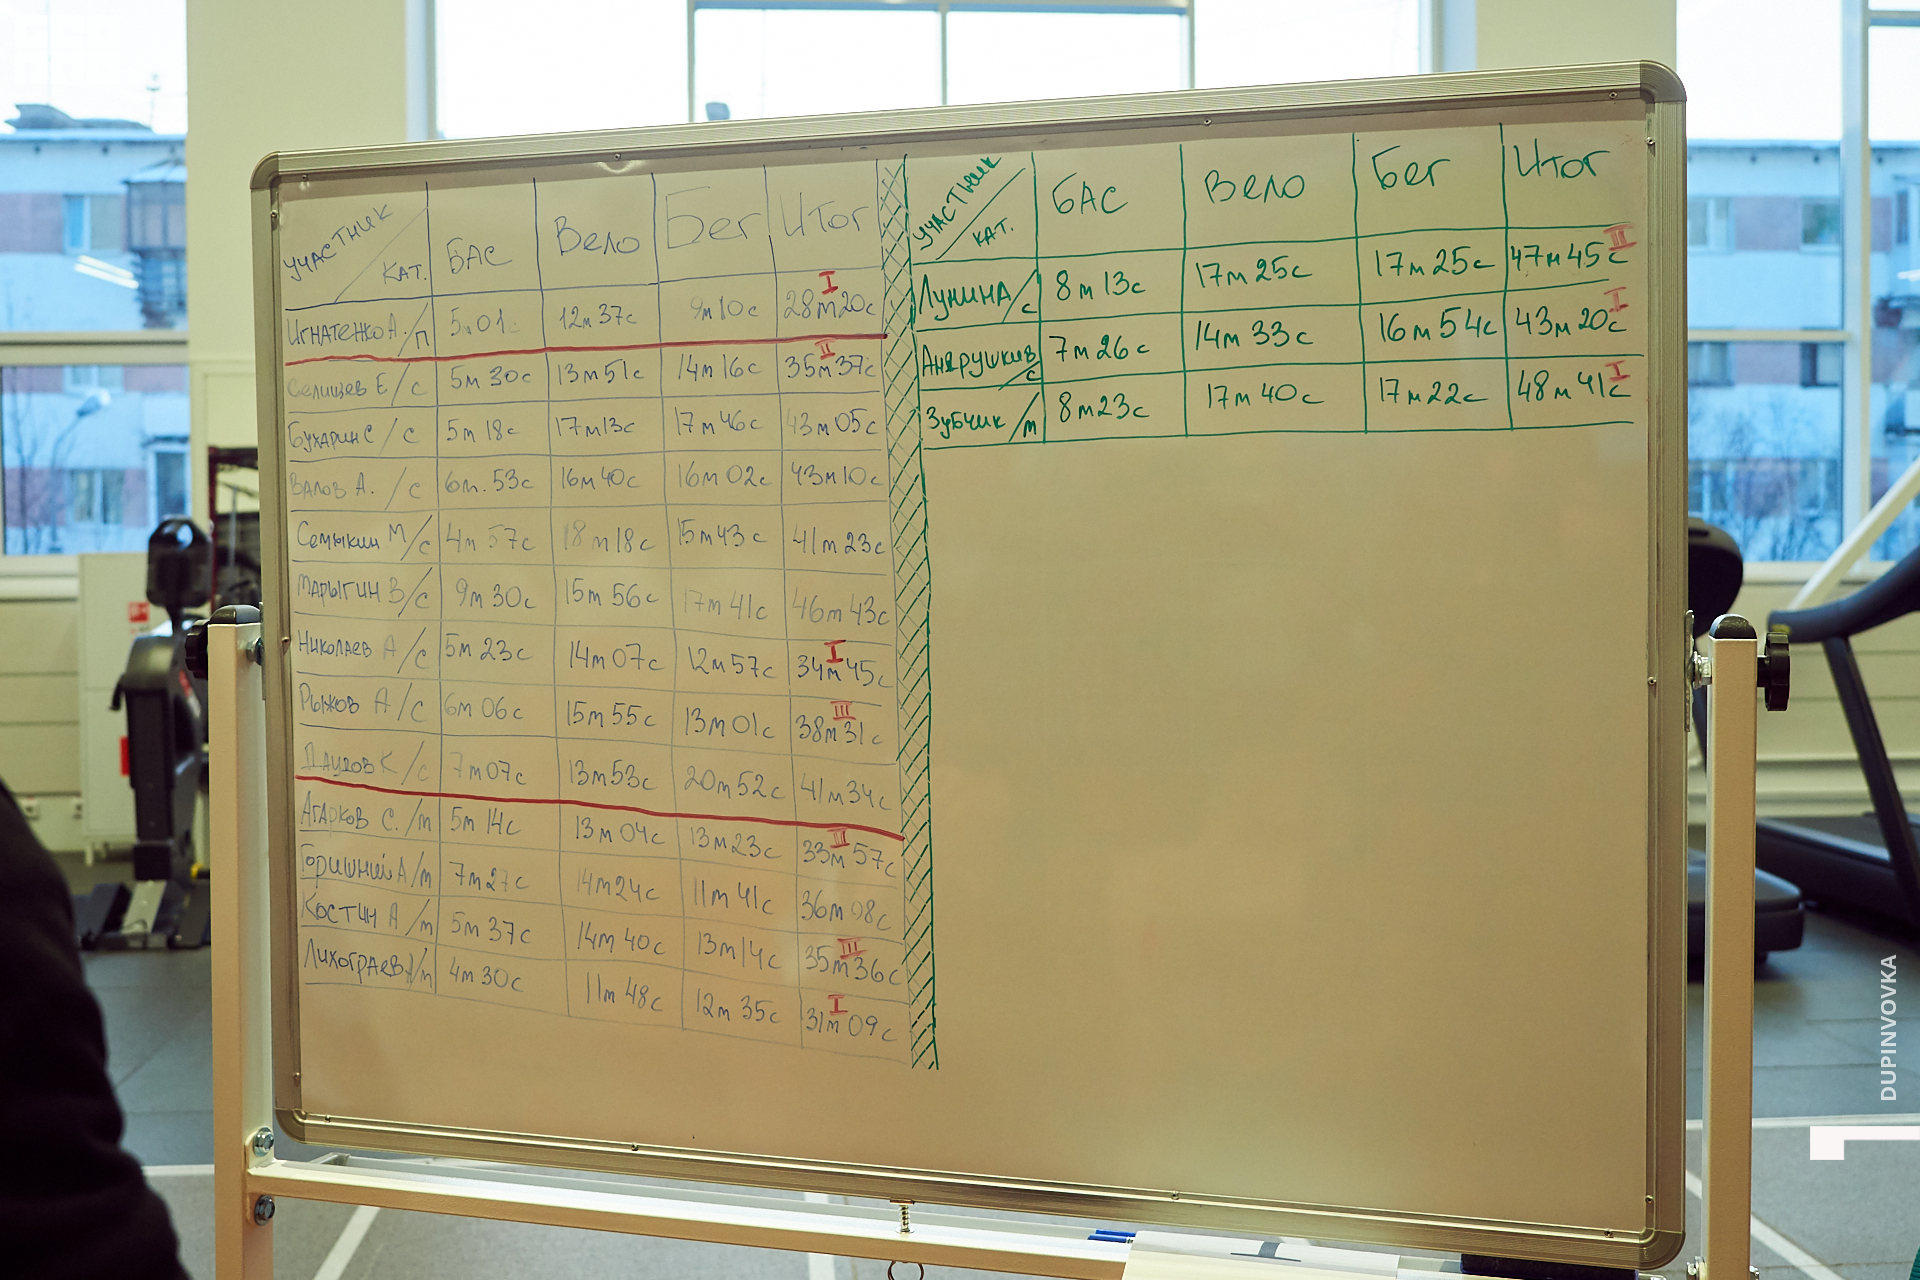 УЧАСТНИК / КАТ. БАС Вело Бег Итог
Игнатенко А. / П 5м01 12м 37с 9м 10с 28м 20с I
Селищев Е / С 5м 30с 13м 51с 14м 16с 35м 37с II
Бухарин С / С 5м 18с 17м13с 17м 46с 43м 05с
Валов А. / С 6м. 53с 16м 40с 16м 02с 43м 10с
Семыкин М / С 4м 57с 18м 18с 15м 43с 41м 23с
Марыгин В / С 9м 30с 15м 56с 17м 41с 46м 43с
Николаев А / С 5м 23с 14м 07с 12м 57с 34м 45с I
Рыжов А / С 6м 06с 15м 55с 13м 01с 38м 31с III
К / С 7м 07с 13м 53с 20м 52с 41м 34с
Агарков С. / м 5м 14с 13м 04с 13м 23с 33м 57с III
Горишний А / м 7м 27с 14м 24с 11м 41с 36м 08с
Костин А / м 5м 37с 14м 40с 13м 14с 35м 36с III
Лихограев А / м 4м 30с 11м 48с 12м 35с 31м 09с I
УЧАСТНИК / КАТ. БАС Вело Бег Итог
Лунина / С 8м 13с 17м 25с 17м 25с 47м 45с III
Андрушкив / С 7м 26с 14м 33с 16м 54с 43м 20с I
Зубчик / м 8м 23с 17м 40с 17м 22с 48м 41с I
DUPINVOVKA